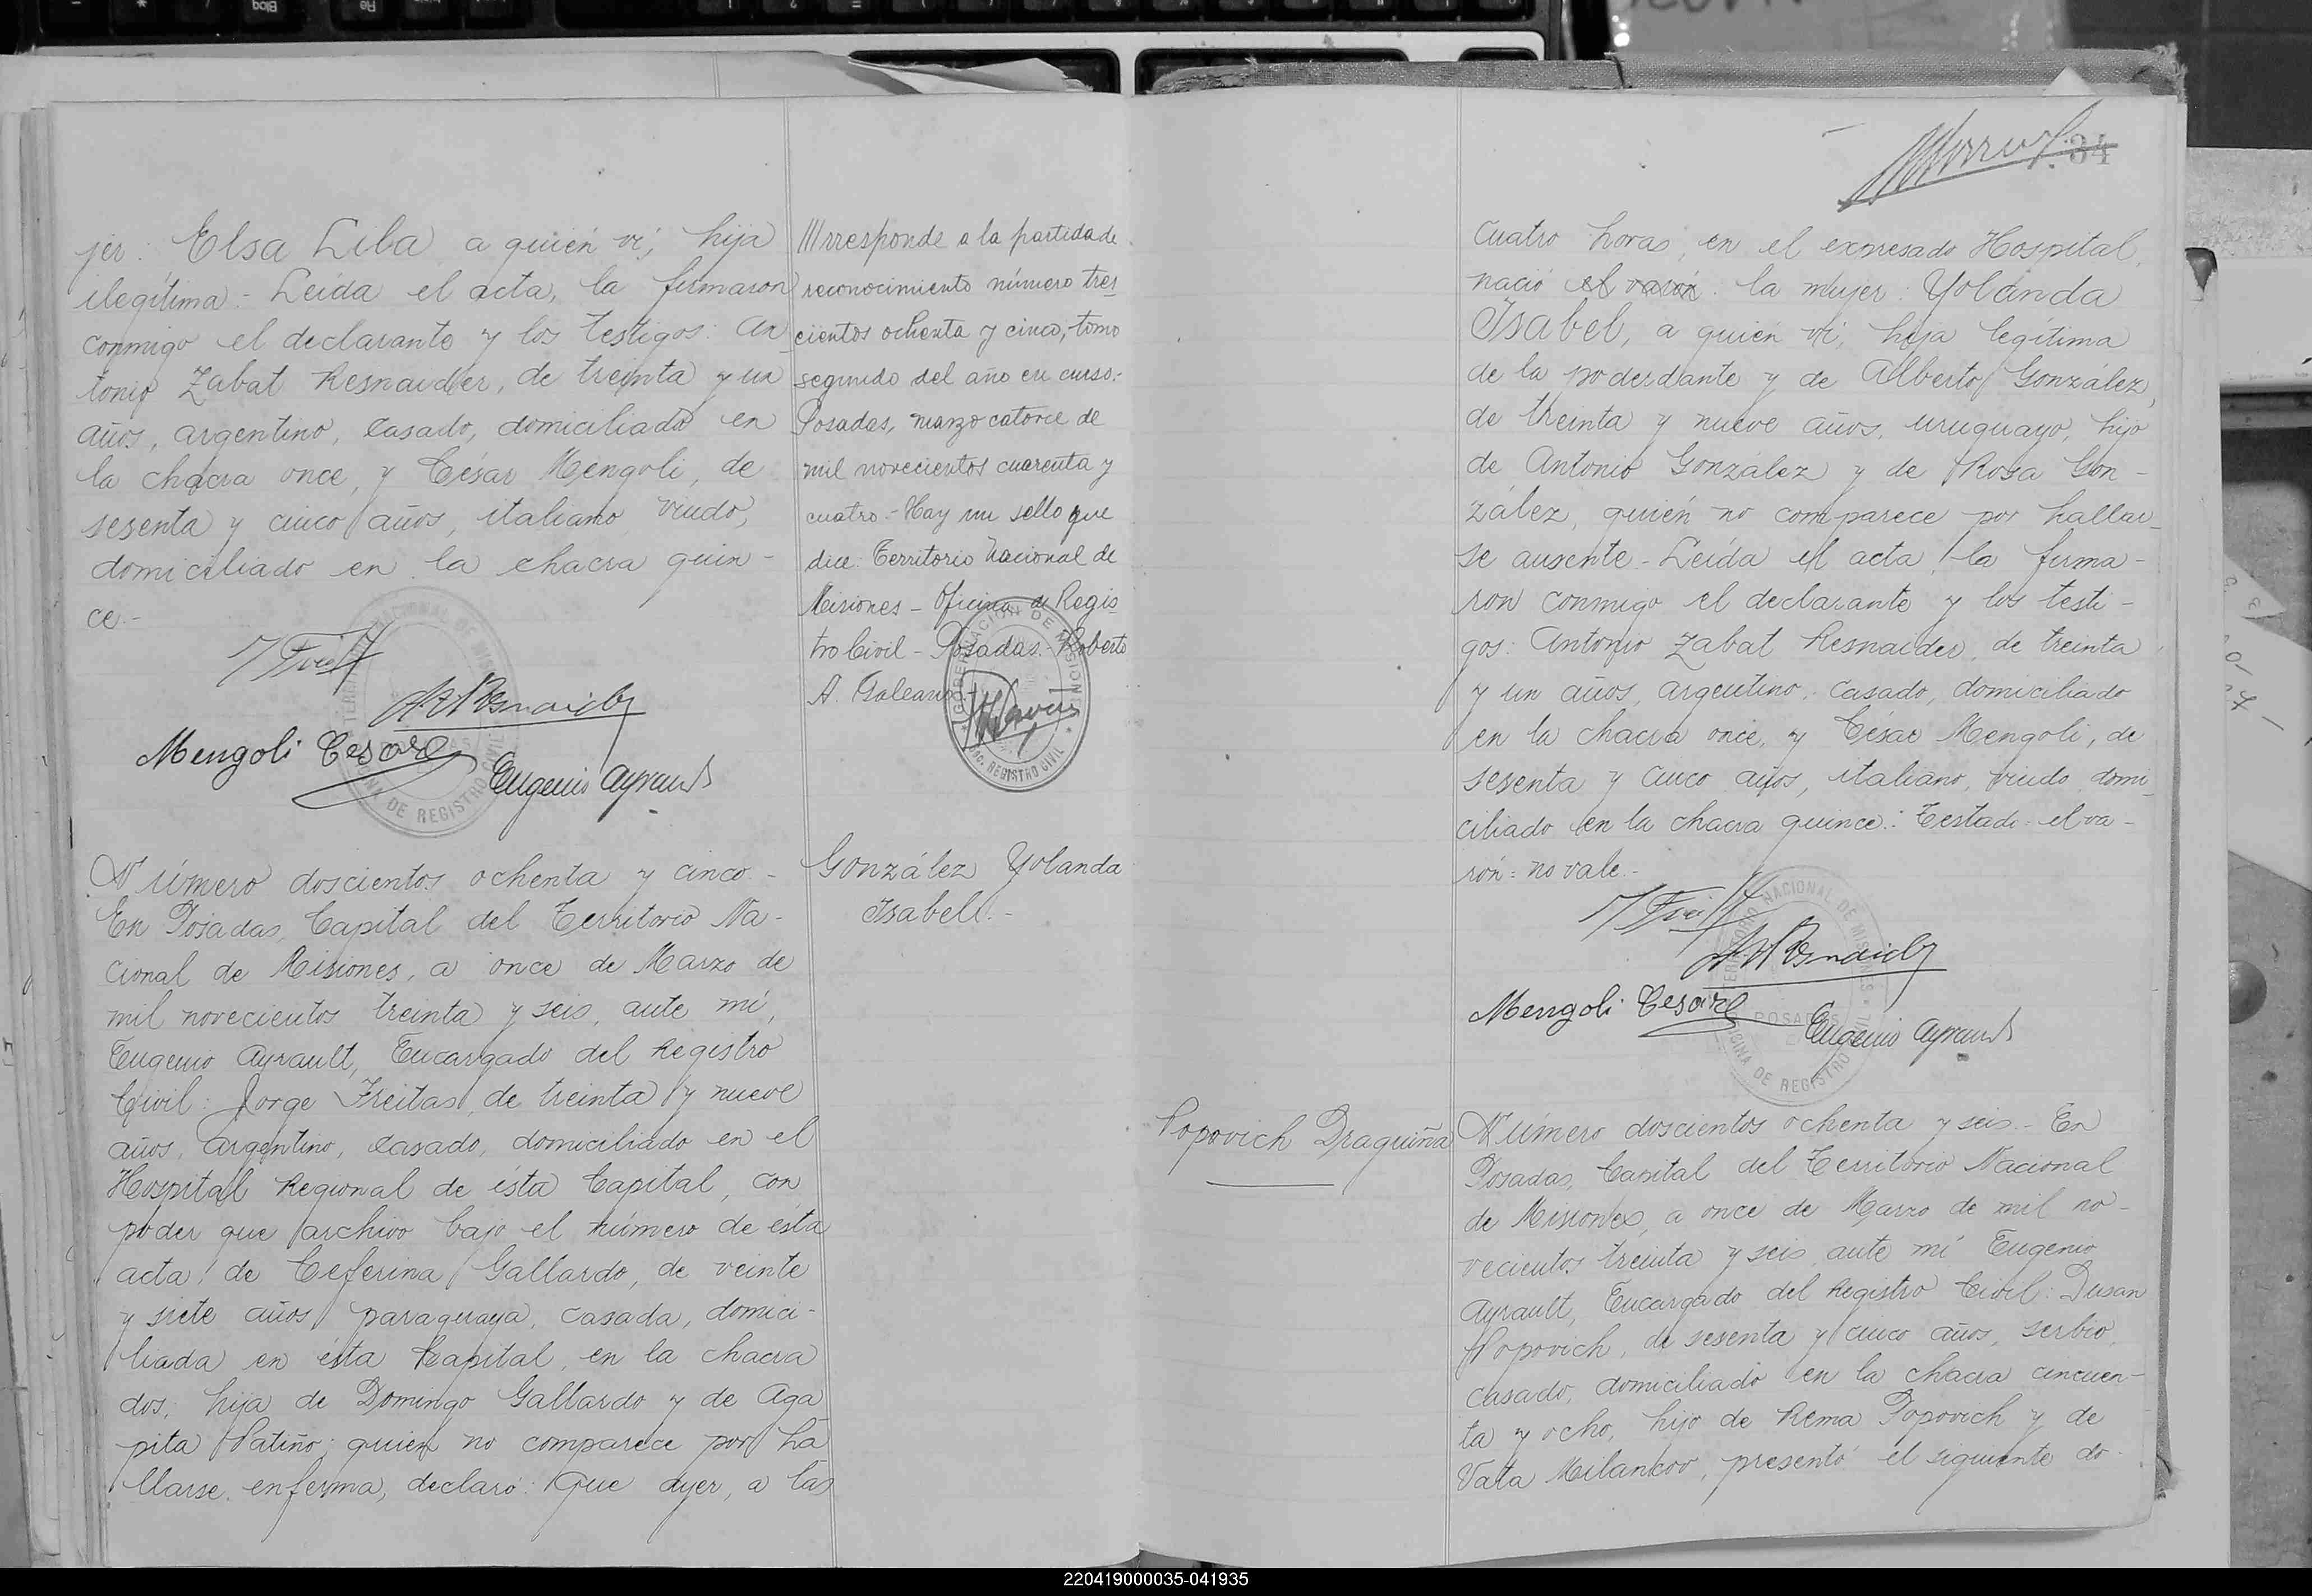 jer: Elsa Liba a quién vi; hija
ilegítima.- Leída el acta, la firmaron
conmigo el declarante y los testigos: An
tonio Zabat Resnaider, de treinta y un
años, argentino, casado, domiciliado en
la chacra once, y César Mengoli, de
sesenta y cinco años, italiano viudo,
domiciliado en la chacra quin-
ce.-
Mengoli Cesare
Eugenio Ayrault
Número doscientos ochenta y cinco.-
En Posadas, Capital del Territorio Na-
cional de Misiones, a once de Marzo de
mil novecientos treinta y seis, ante mí,
Eugenio Ayrault, Encargado del Registro
Civil: Jorge Freitas, de treinta y nueve
años, argentino, casado, domiciliado en el
Hospital Regional de ésta Capital, con
poder que archivo bajo el número de ésta
acta, de Ceferina Gallardo, de veinte
y siete años paraguaya, casada, domici-
liada en ésta Capital, en la chacra
dos, hija de Domingo Gallardo y de Aga
pita Patiño; quien no comparece por ha
llarse enferma, declaró: Que ayer, a las
///rresponde a la partida de
reconocimiento número tres
cientos ochenta y cinco, tomo
segundo del año en curso.-
Posadas, marzo catorce de
mil novecientos cuarenta y
cuatro.- Hay un sello que
dice: Territorio Nacional de
Misiones - Oficina de Regis
tro Civil - Posadas.- Roberto
A. Galeano.-
GOBERNACION DE MISIONES
REGISTRO CIVIL
González Yolanda
Isabel.-
34
cuatro horas, en el expresado Hospital,
nació el varón: la mujer: Yolanda
Isabel, a quién vi, hija legítima
de la poderdante y de Alberto González,
de treinta y nueve años, uruguayo, hijo
de Antonio González y de Rosa Gon-
zález, quién no comparece por hallar-
se ausente.- Leída el acta, la firma-
ron conmigo el declarante y los testi-
gos: Antonio Zabat Resnaider, de treinta
y un años, argentino, casado, domiciliado
en la chacra once, y César Mengoli, de
sesenta y cinco años, italiano, viudo, domi
ciliado en la chacra quince.: Testado: el va-
rón: no vale.-
Mengoli Cesare
Eugenio Ayrault
TERRITORIO NACIONAL DE MISIONES
POSADAS
OFICINA DE REGISTRO CIVIL
Popovich Draguiña
Número doscientos ochenta y seis.- En
Posadas, Capital del Territorio Nacional
de Misiones, a once de Marzo de mil no-
vecientos treinta y seis, ante mí Eugenio
Ayrault, Encargado del Registro Civil: Dusan
Popovich, de sesenta y cinco años, serbio,
casado, domiciliado en la chacra cincuen-
ta y ocho, hijo de Rema Popovich y de
Vata Milankov, presentó el siguiente do-
220419000035-041935